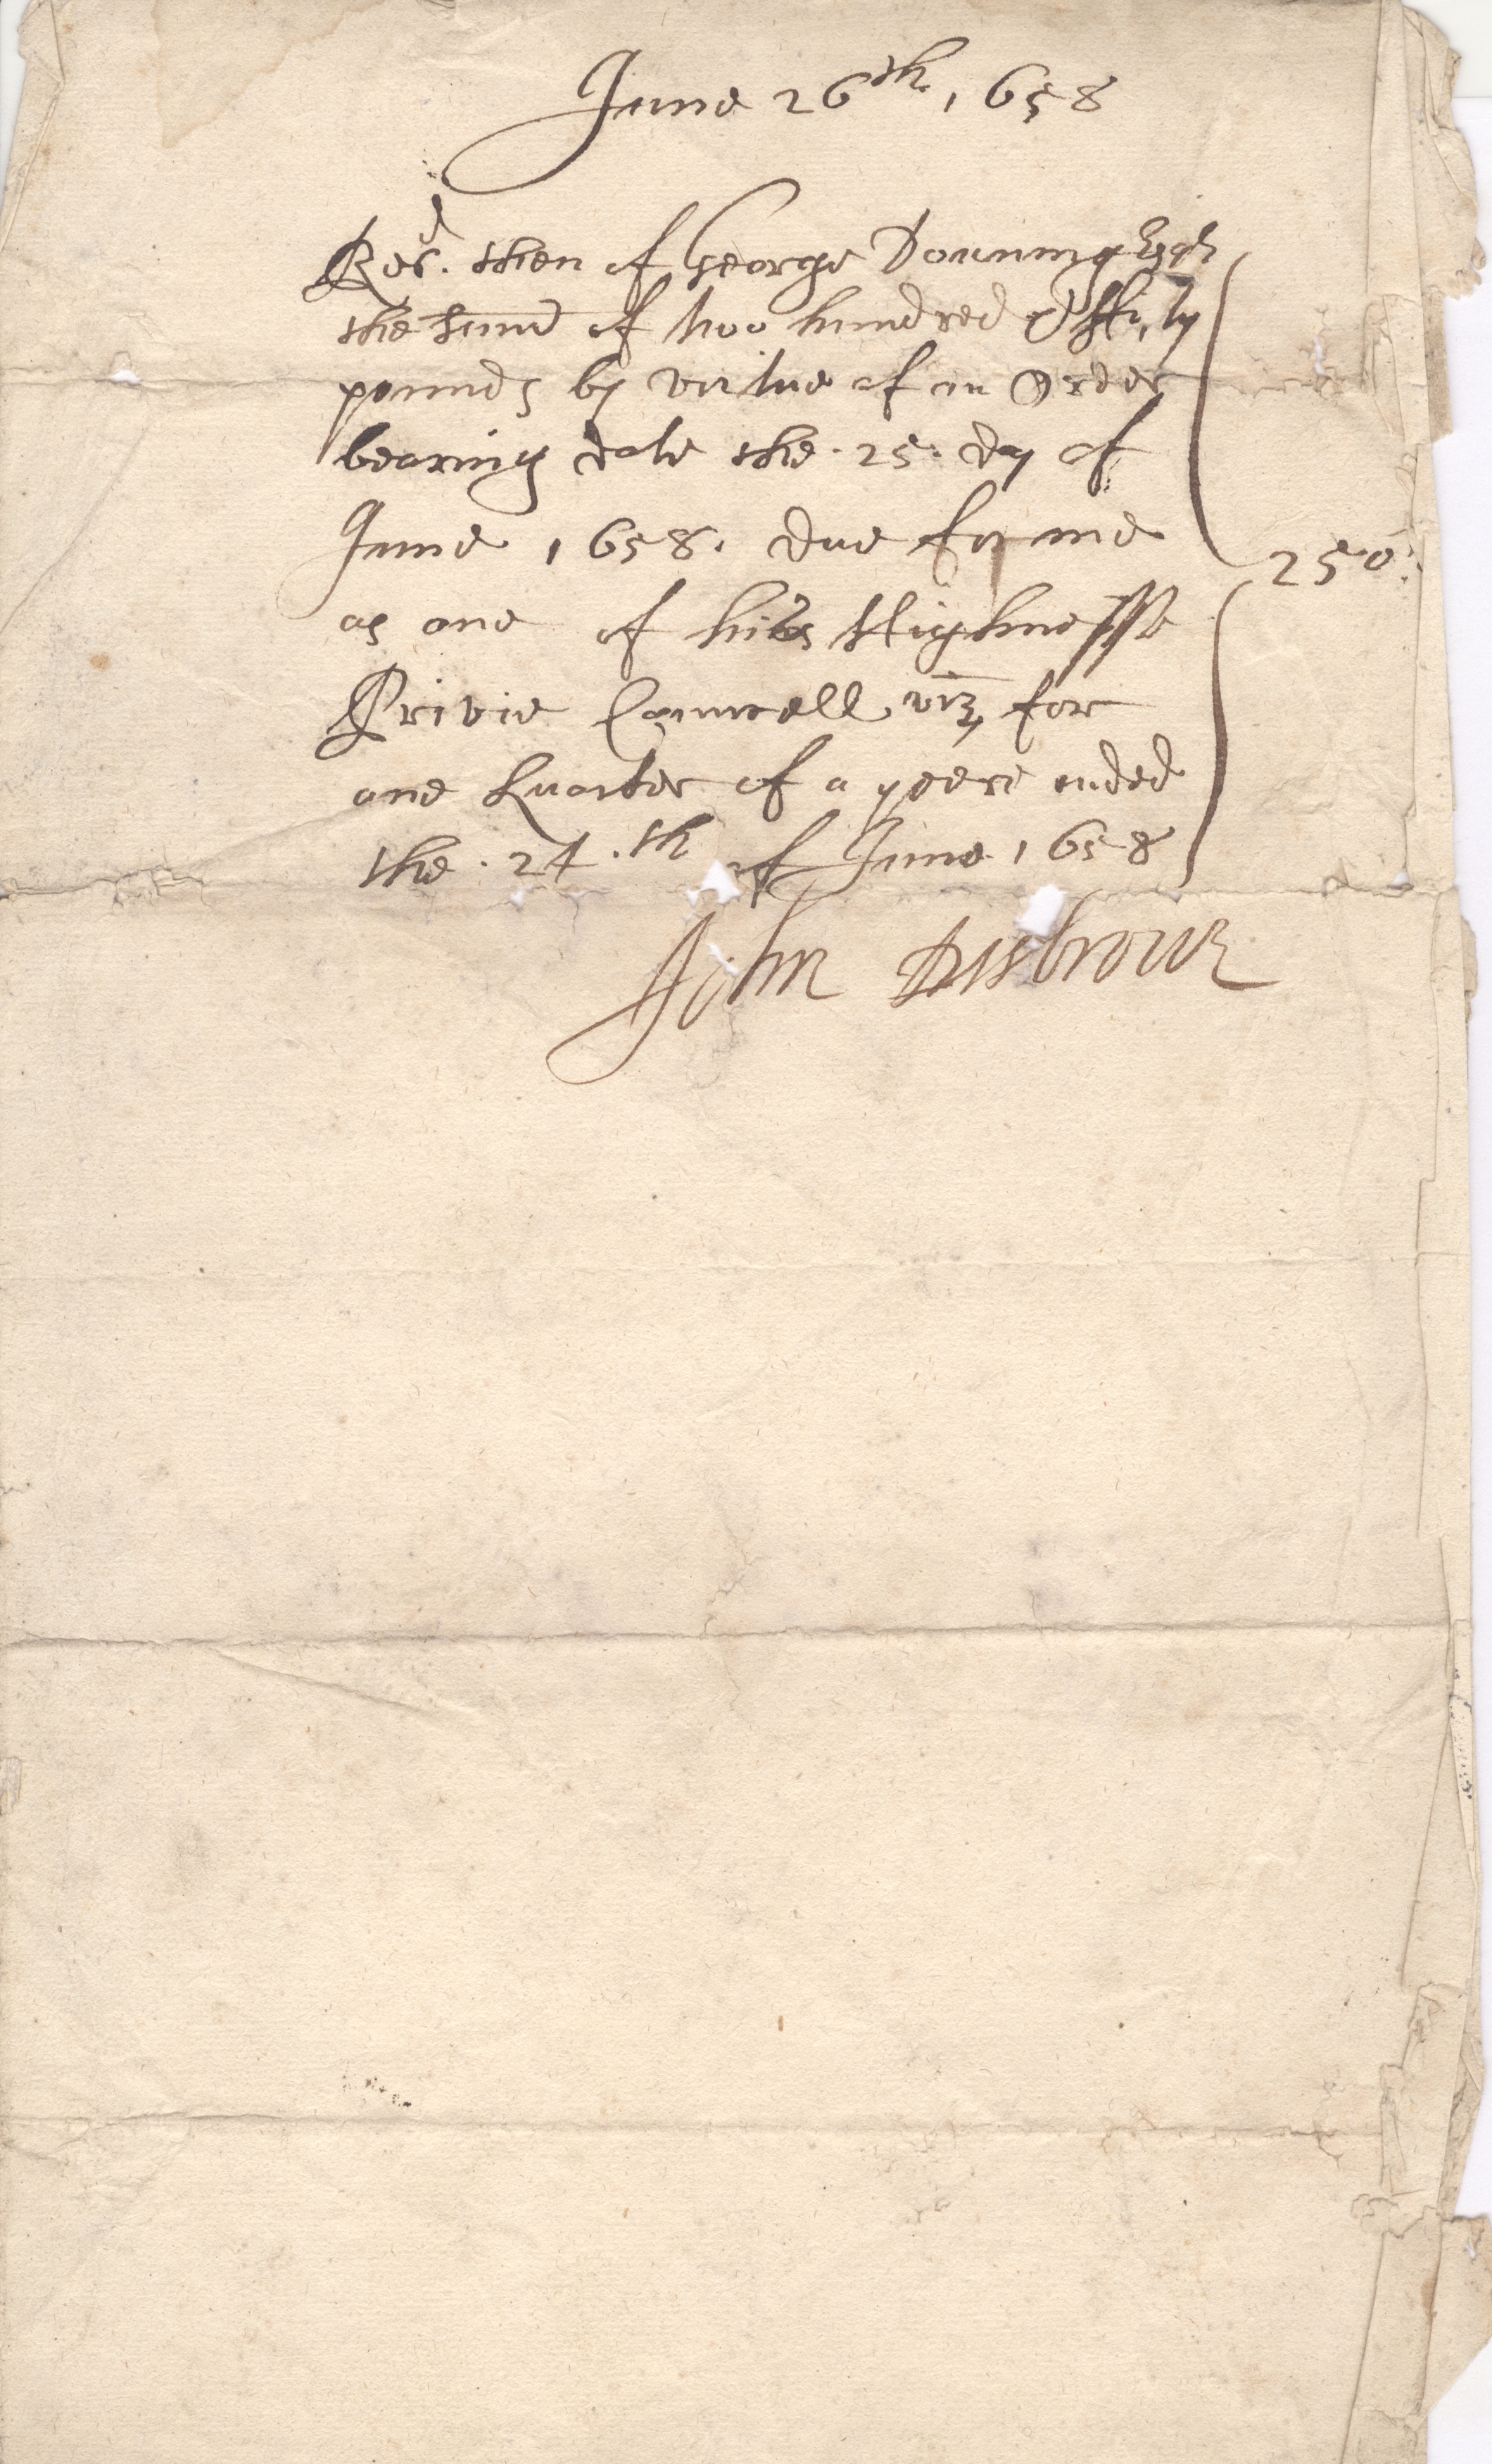 June 26th. 1658
Recd. then of George Downing Esqr
the Summ of two hundred & ffifty
pounds by virtue of an Order
bearing date the .25. day of
June 1658. due for me
as one of his Highnesse
Privie Councell viz, for
one Quarter of a yeere ended
the .24.th of June 1658
250:
John Disbrowe